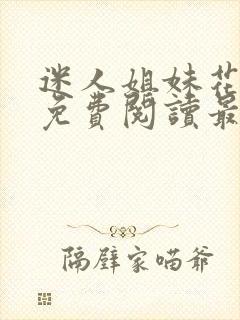 迷人姐妹花
免費閱讀最
隔壁家喵爺